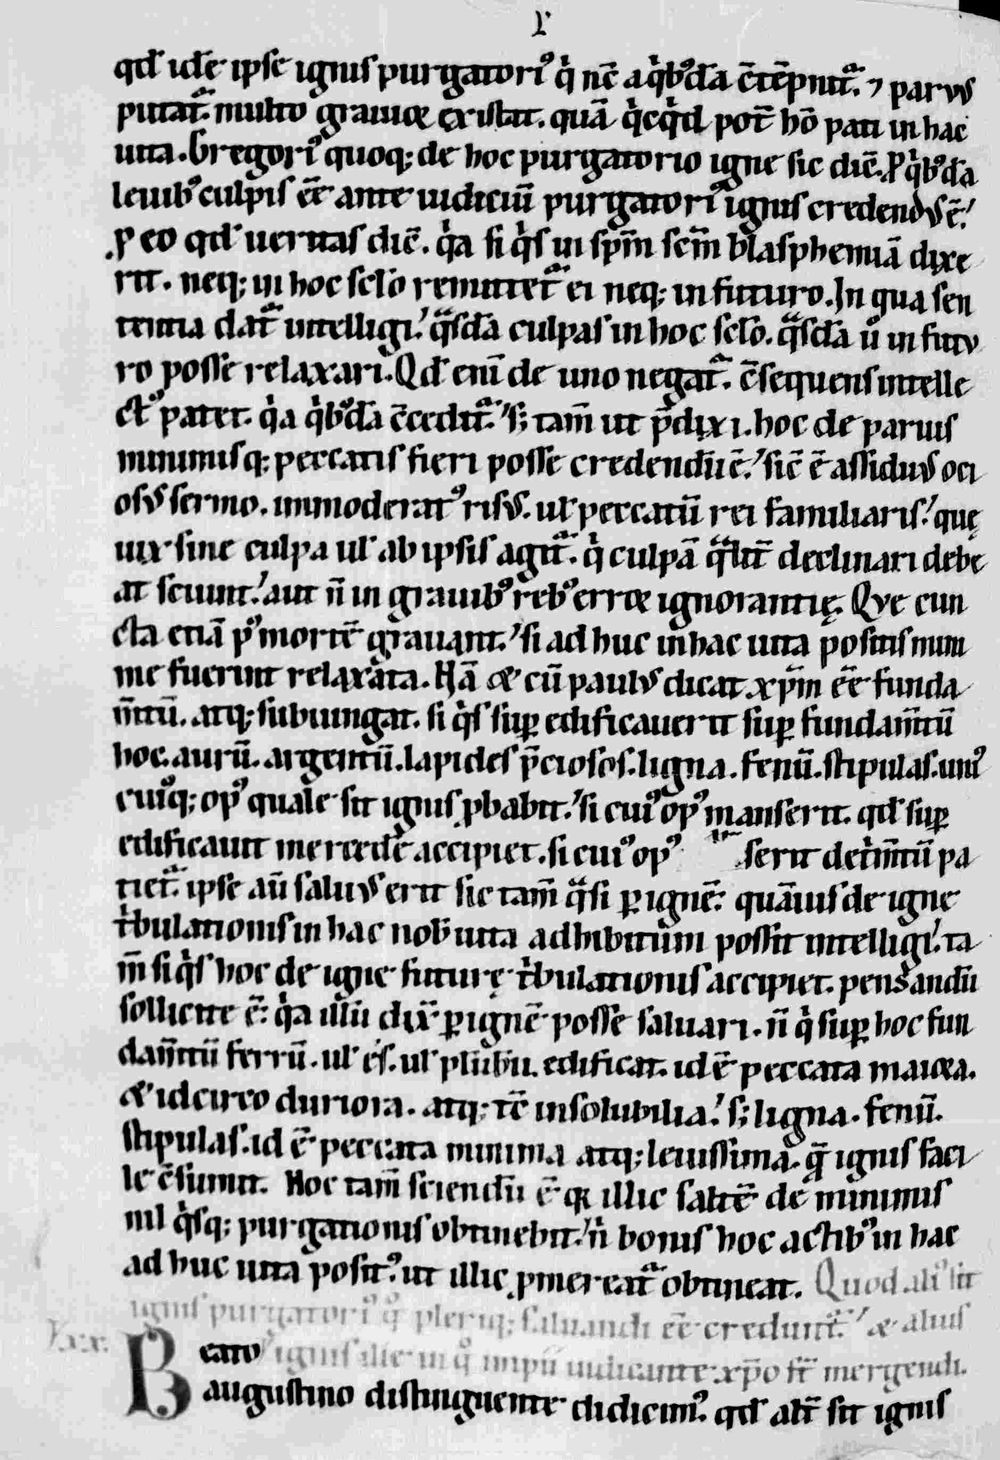 r
qd̄ idē ipse ignis purgatoriꝰ q̇ nc̄ a q̇bꝰdā c̄tēpnit᷑. ⁊ parvus
putat᷑. multo grauior existit. quā q̇cq̇d pot̄ hō pati in hac
uita. Gregoriꝰ quoq; de hoc purgatorio igne sic dic̄. P q̇bꝰdā
leuibꝰ culpis eē ante iudiciū purgatoriꝰ ignis credendus ē.
ꝓ eo qd̄ ueritas dic̄. q̇a si q̇s in sp̄m sc̄m blasphemiā dixe
rit. neq; in hoc sc̄lo remittet᷑ ei neq; in futuro. In qua sen
tentia dat᷑ intelligi. q᷑sdā culpas in hoc sc̄lo. q᷑sdā ū in futu
ro posse relaxari. Qd̄ enī de uno negat᷑. c̄sequens intelle
ctꝰ patet. q̇a q̇bꝰdā c̄cedit᷑. s; tam̄ ut p̄dixi. hoc de paruis
minimisq; peccatis fieri posse credendū ē. sic̄ ē assiduus oci
osus sermo. immoderatꝰ risus. ul̄ peccatū rei familiaris. quę
uix sine culpa ul̄ ab ipsis agit᷑. q̇ culpā q᷑lit̄ declinari debe
at sciunt. aut n̄ in grauibꝰ rebꝰ error ignorantię. Que cun
cta etiā pꝰ mortē grauant. si adhuc in hac uita positis mini
me fuerint relaxata. Nā & cū paulus dicat xp̄m eē funda
m̄tū. atq; subiungat. si q̇s suꝑ edificauerit suꝑ fundam̄tū
hoc. aurū. argentū. lapides p̄ciosos. ligna. fenū. stipulas. uniꝰ
cuiꝰq; opꝰ quale sit ignis ꝓbabit. si cuiꝰ opꝰ manserit. qd̄ suꝑ
edificauit mercedē accipiet. si cuiꝰ opꝰ serit detm̄tū pa
tiet᷑. ipse aū saluus erit sic tam̄ q᷑si ꝑ ignē. quāuis de igne
tribulationis in hac nob̄ uita adhibitum possit intelligi. ta
m̄ si q̇s hoc de igne futurę tribulationis accipiet. pensandū
sollicite ē. q̇a illū dix̄ ꝑ ignē posse saluari. n̄ q̇ suꝑ hoc fun
dam̄tū ferrū. ul̄ es. ul̄ plūbū. edificat. id ē peccata maiora.
& idcirco duriora. atq; tc̄ insolubilia. s; ligna. fenū.
stipulas. id ē peccata minima atq; leuissima. q̄ ignis faci
le c̄sumit. Hoc tam̄ sciendū ē qꝛ illic saltē de minimis
nil q̇sq; purgationis obtinebit. n̄ bonis hoc actibꝰ in hac
adhuc uita positꝰ. ut illic ꝓmereat᷑ obtineat. Quod aliꝰ sit
ignis purgatoriꝰ q̄ pleriq; saluandi eē credunt᷑. & alius
xxx. Beato ignis ille in q̊ impii iudicante xp̄o st̄ mergendi.
augustino distinguente didicimꝰ. qd̄ alt̄ sit ignis